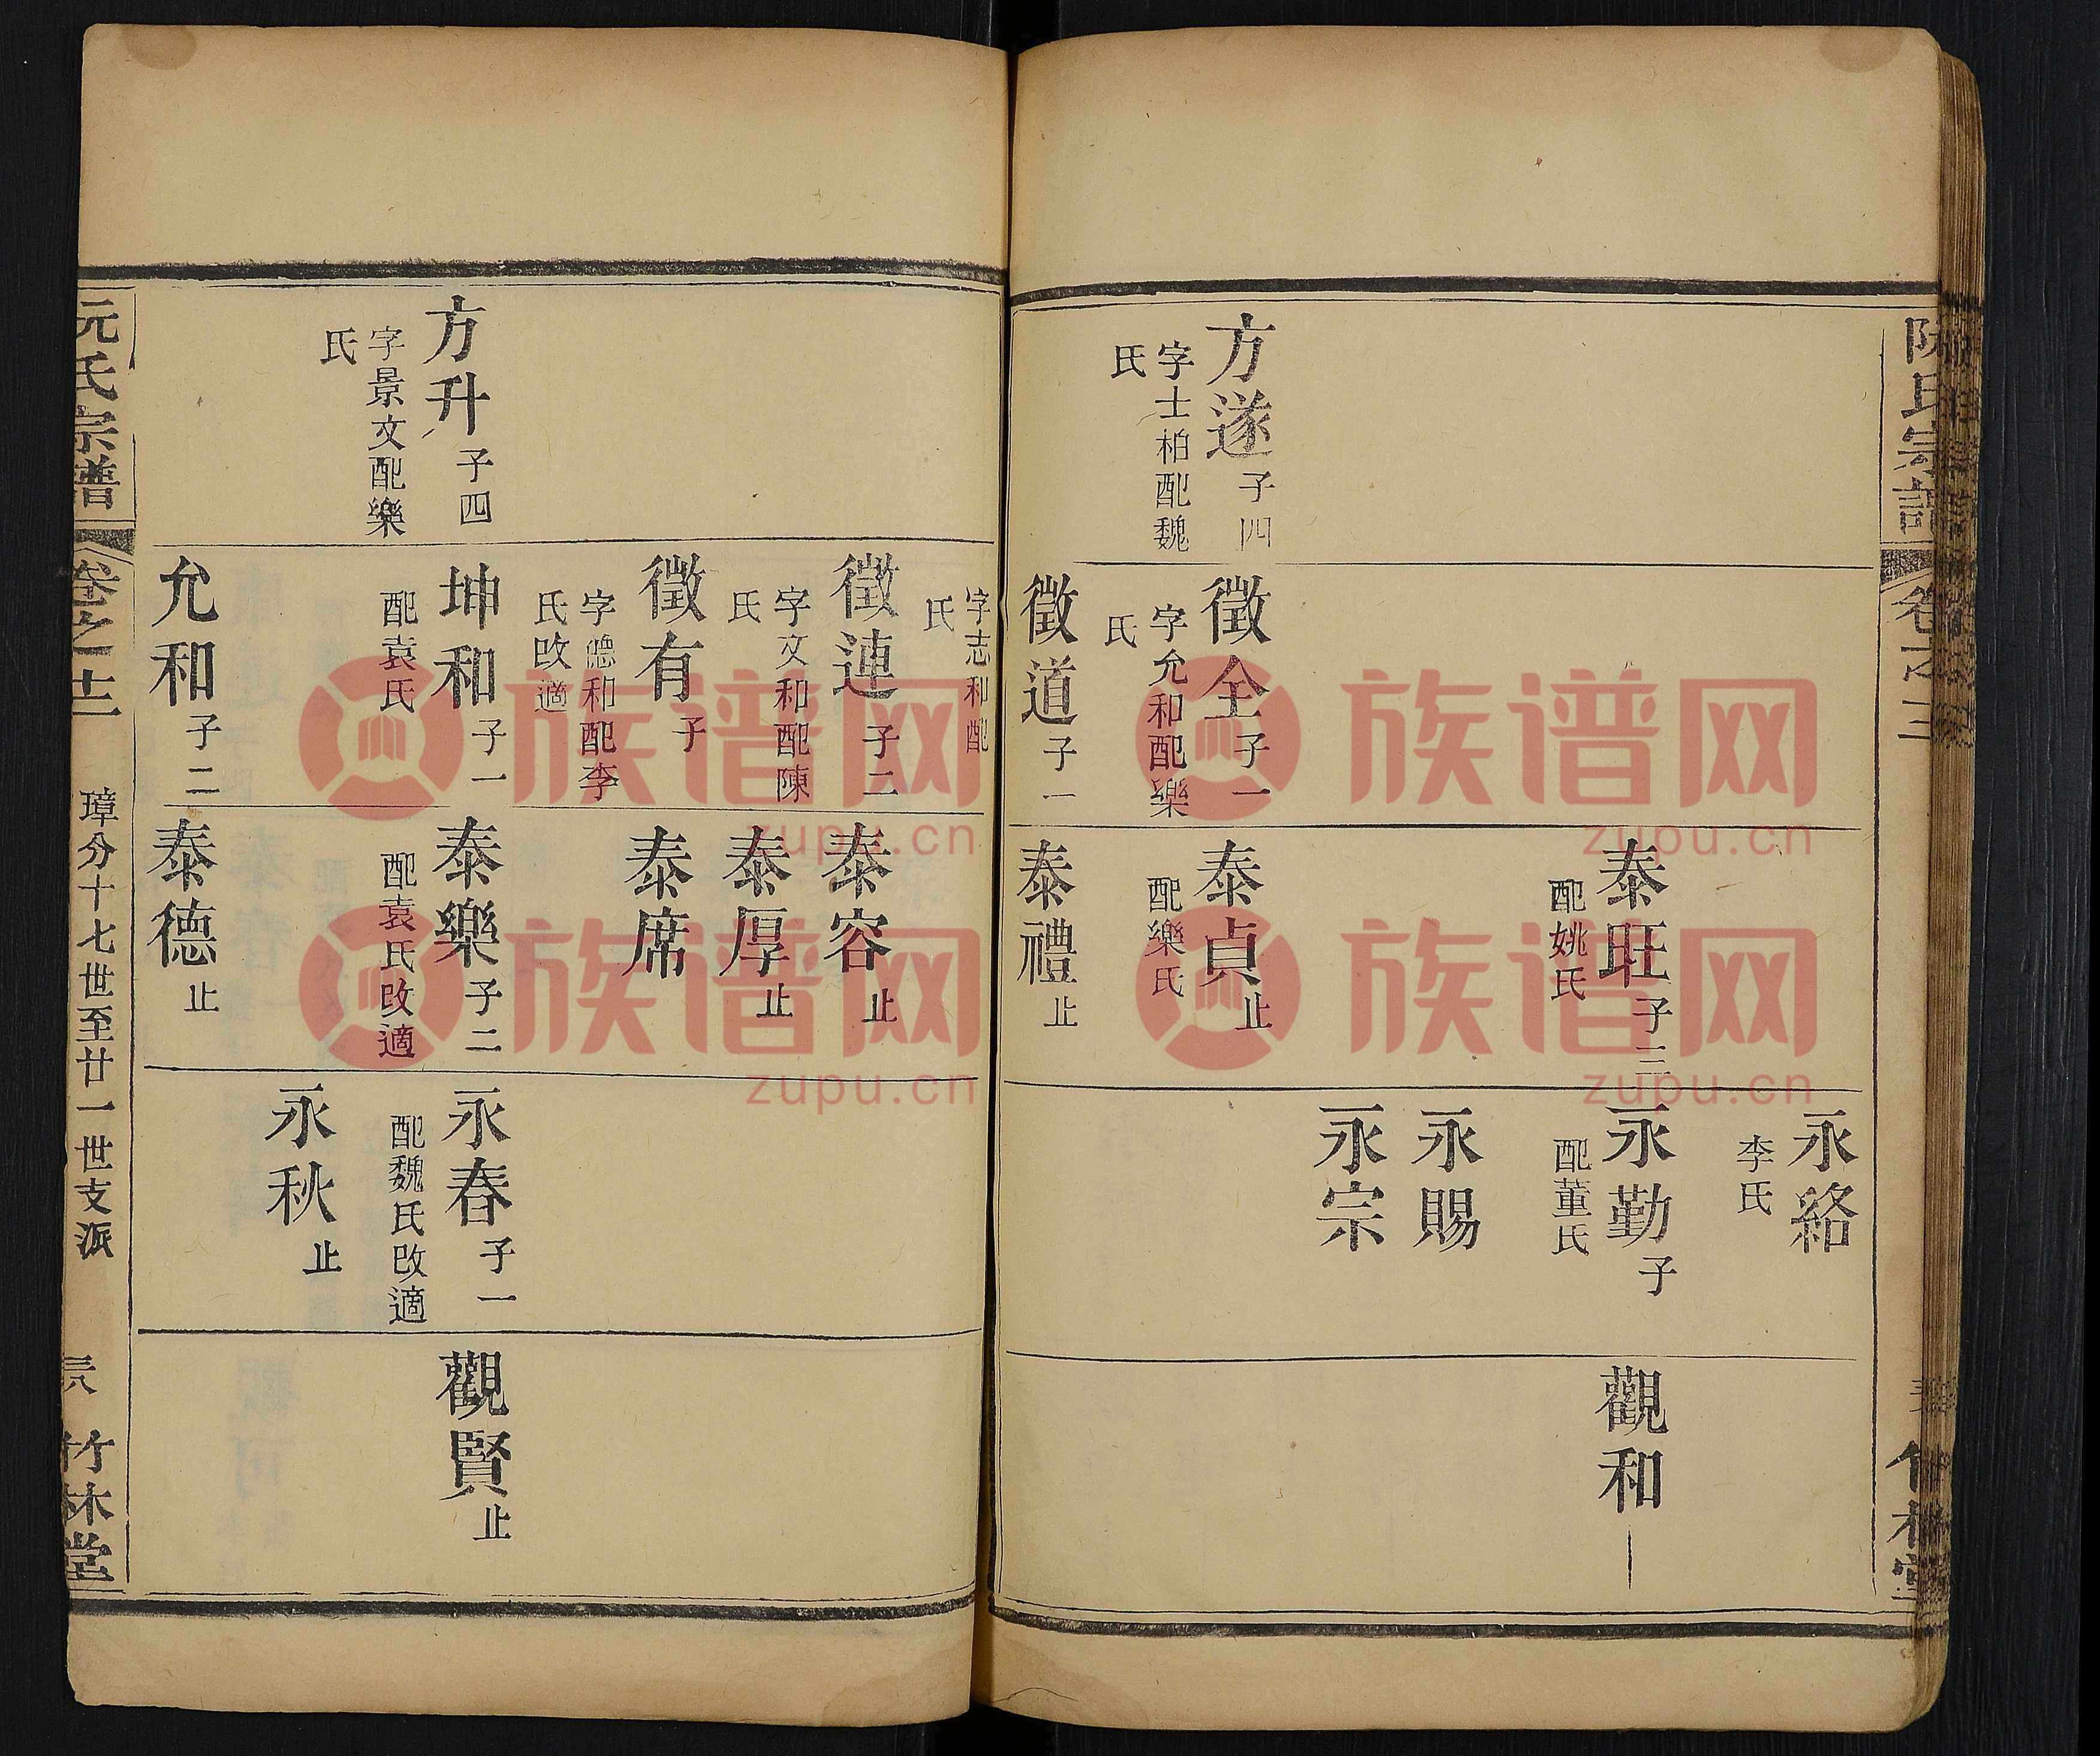 氏宗
卷之三
竹林堂
方遂子四
字士柏配魏
氏
徵全子一
字允和配樂
氏
徵道子一
泰旺子三
配姚氏
泰貞止
配樂氏
泰禮止
永絡
李氏
永勤子
配董氏
永賜
永宗
觀和
方升子四
字景文配樂
氏
字志和配
氏
徵連子二
字文和配陳
氏
徵有子
字德和配李
氏改適
坤和子一
配袁氏
允和子二
泰容止
泰厚止
泰席
泰樂子二
配袁氏改適
泰德止
永春子一
配魏氏改適
永秋止
觀賢止
阮氏宗譜
卷之十二
璋分十七世至廿一世支派
竹林堂
族谱网
zupu.cn
族谱网
zupu.cn
族谱网
zupu.cn
族谱网
zupu.cn